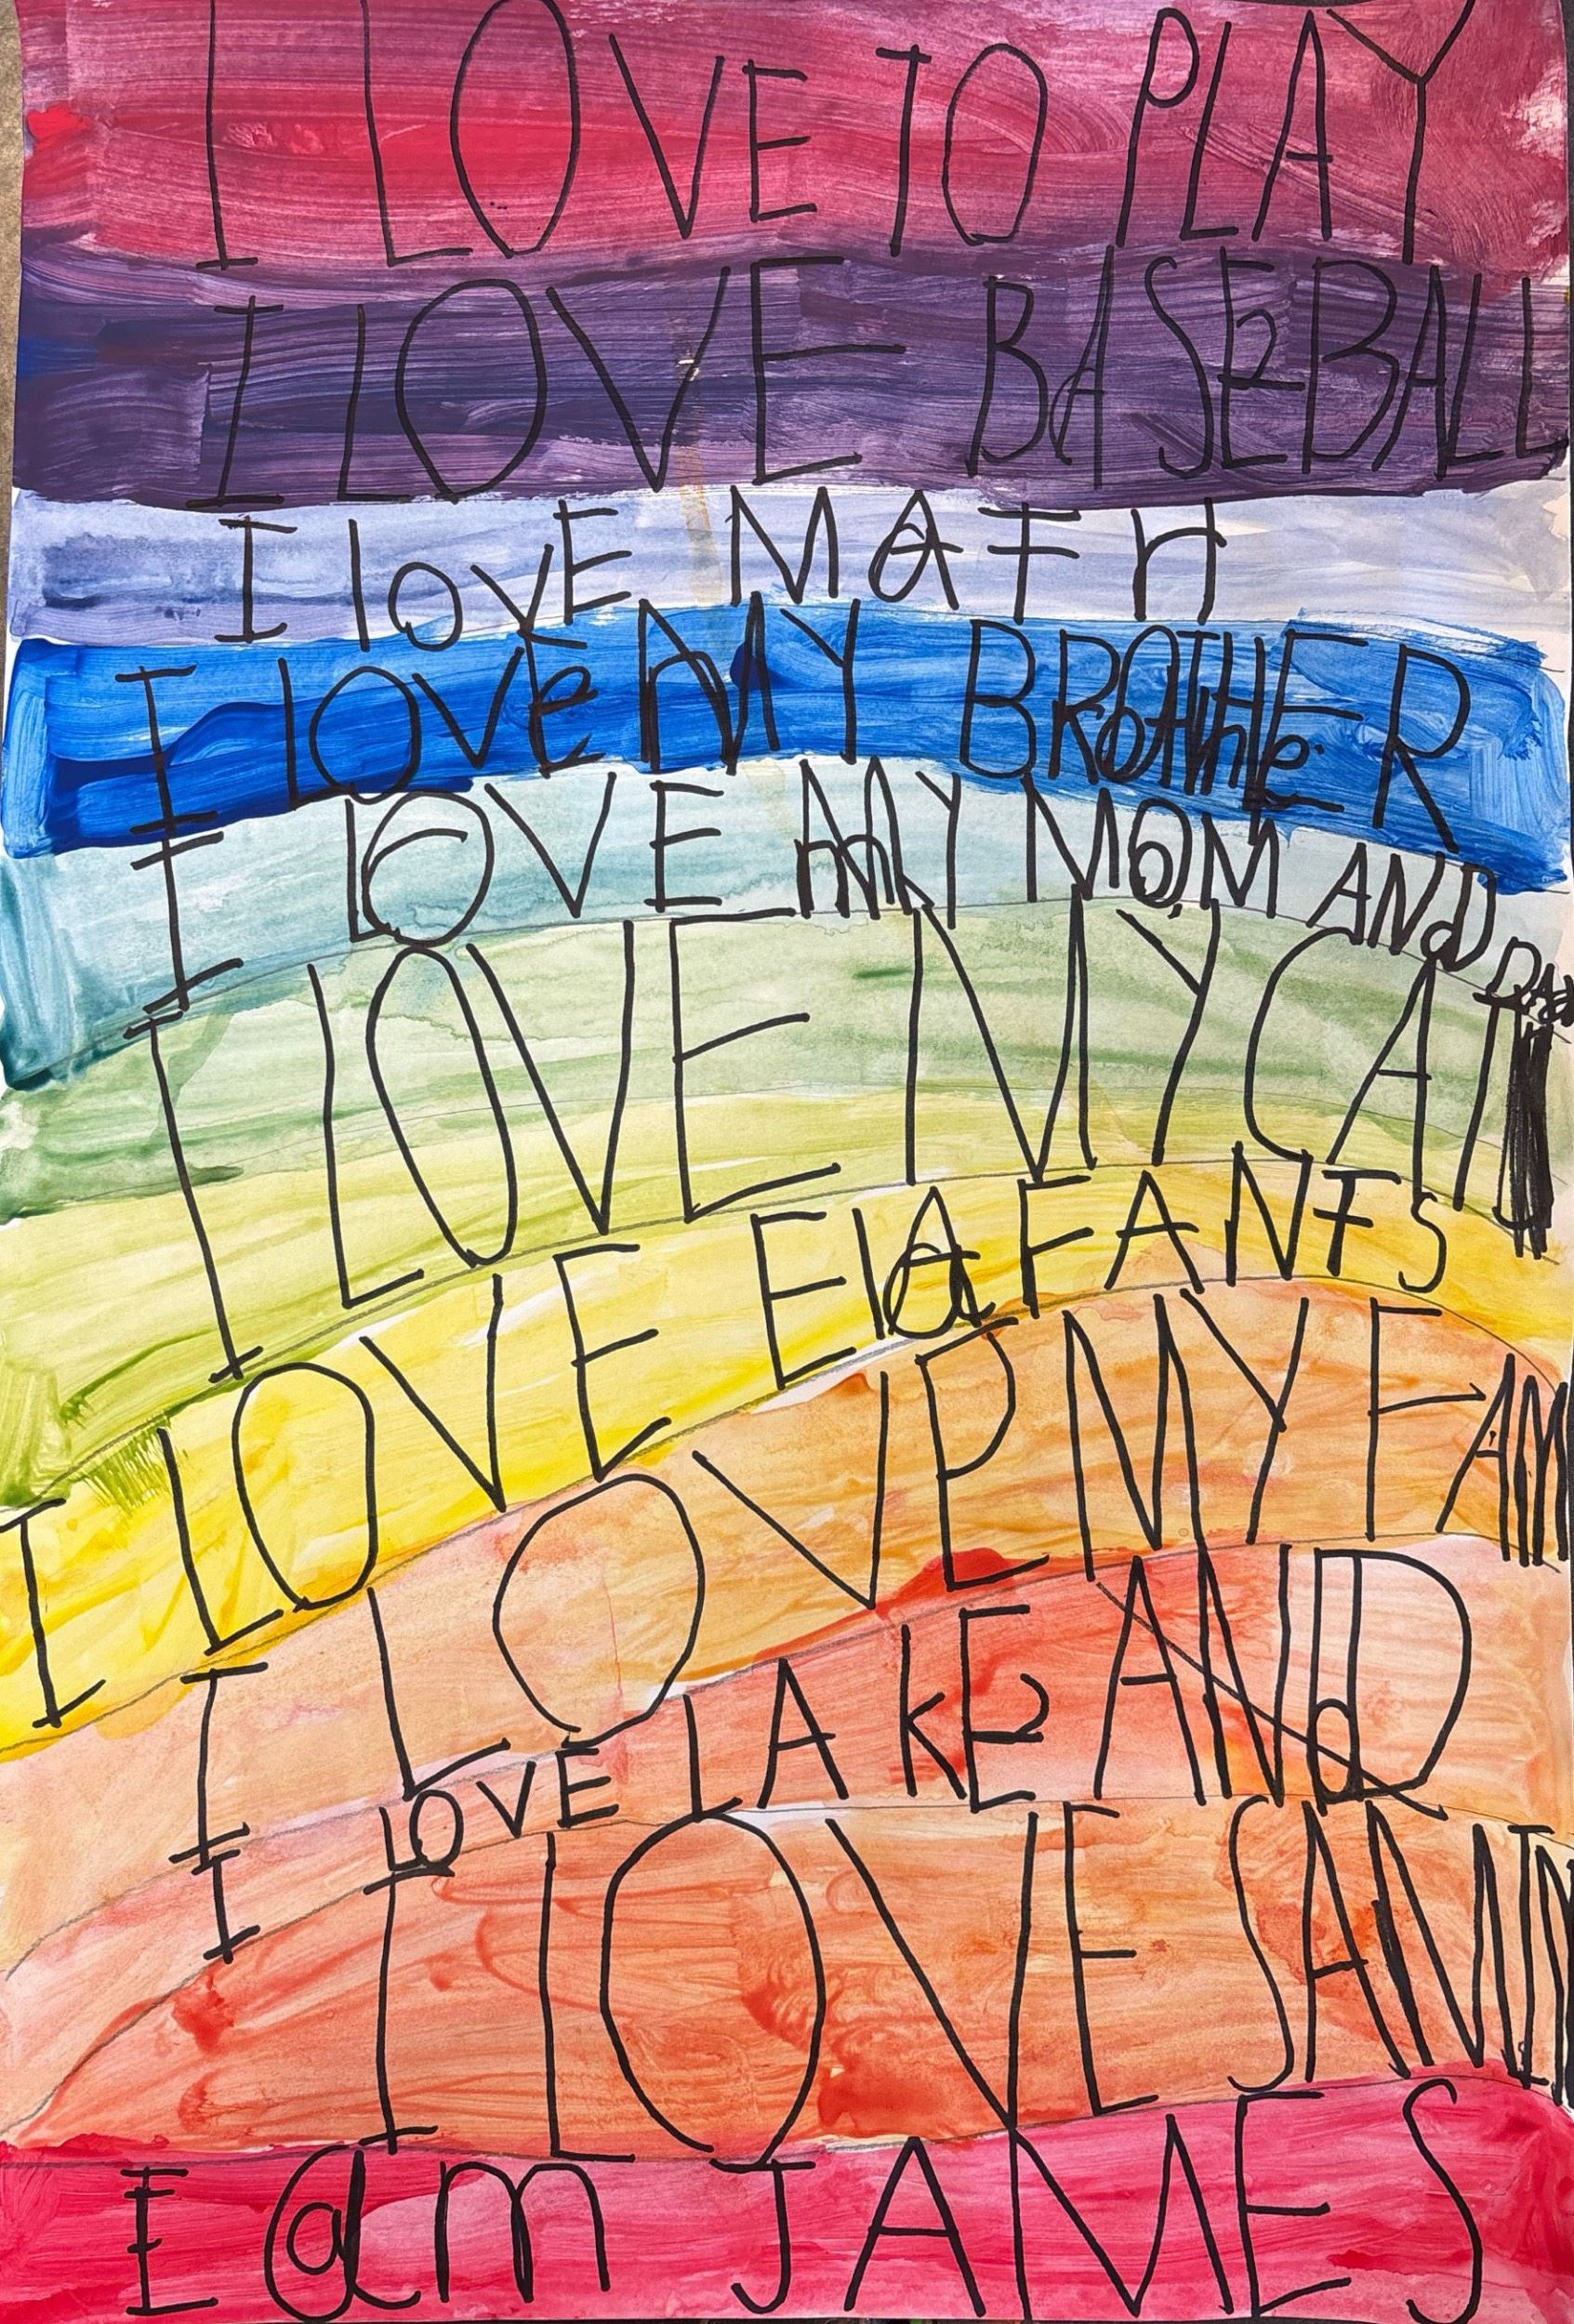 I LOVE TO PLAY
I LOVE BASEBALL
I lOVE MATH
I lOVE MY BROTHER
I LOVE MY MOM AND DAd
I LOVE MY CAT
I LOVE ElAFANTS
I LOVE MY FAM
I LOVE LAKE AND
I LOVE
I am JAMES